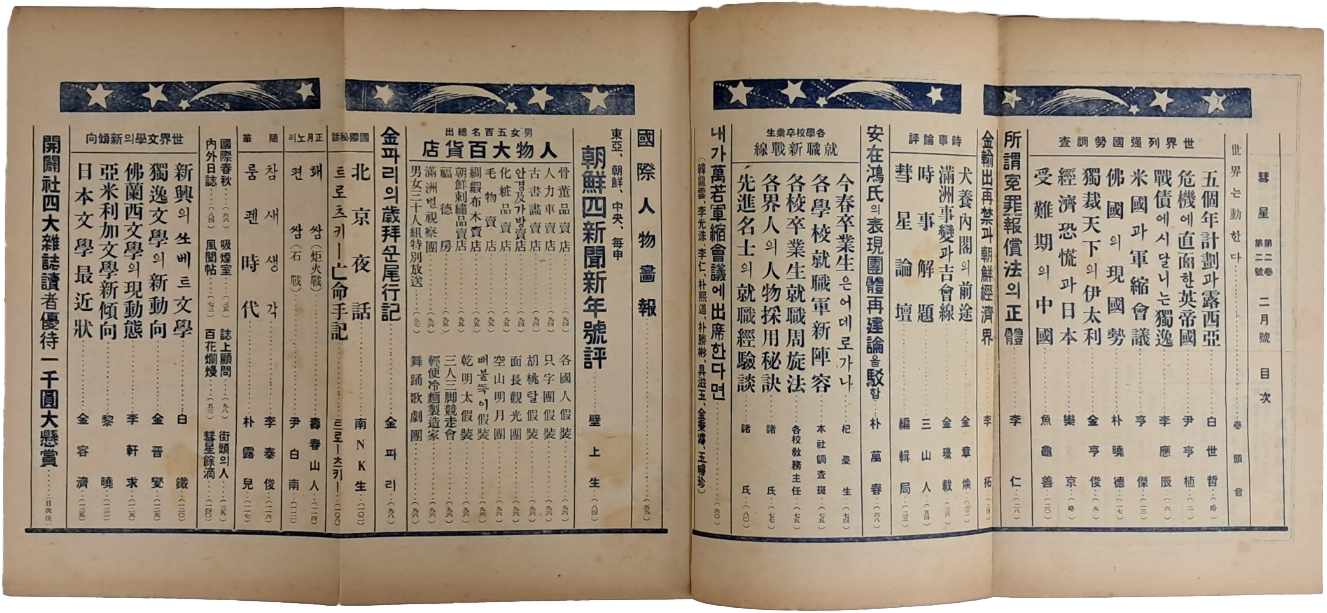 彗星 第二卷 第二號 二月號 目次
世界는動한다 卷頭言
世界列强國勢調査
五個年計劃과露西亞 白世哲
危機에直面한英帝國 尹亨植
戰債에시달니는獨逸 李應辰
米國과軍縮會議 亨傑
佛國의現國勢 朴曉德
獨裁天下의伊太利 金亨俊
經濟恐慌과日本
受難期의中國 魚龜善
所謂寃罪報償法의正體 李仁
金輸出再禁과朝鮮經濟界 李拓
時事論評
犬養內閣의前途 金章煥
滿洲事變과吉會線
時事解題 三山人
彗星論壇 編輯局
安在鴻氏의表現團體再建論을駁함 朴萬春
各學校卒業生
就職新戰線
今春卒業生은어데로가나 杞憂生
各學校就職軍新陣容 本社調査班
各校卒業生就職周旋法 各校敎務主任
各界人의人物採用秘訣 諸氏
先進名士의就職經驗談 諸氏
내가萬若軍縮會議에出席한다면
(韓龍雲、李光洙、李仁、朴熙道、朴勝彬、具滋玉、金秉濬、玉璿珍)
國際人物畵報
東亞、朝鮮、中央、每申
朝鮮四新聞新年號評 壁上生
男女五百名總出
人物大百貨店
骨董品賣店
人力車賣店
古書畵賣店
안경及가방賣店
化粧品賣店
毛物賣店
綢緞布木賣店
朝鮮刺繡品賣店
福德房
滿洲벌視察團
男女三千人組特別放送
各國人假裝
只字團假裝
胡桃탈假裝
面長觀光團
空山明月團
배불뚝이假裝
乾明太假裝
三人三脚競走會
輕便冷麵製造家
舞踊歌劇團
金파리의歲拜군尾行記 金파리
國際秘話
北京夜話 南NK生
트로츠키ー亡命手記 트로ー츠키ー
正月노리
홰쌈(炬火戰) 壽春山人
편쌈(石戰) 尹白南
隨筆
참새생각 李泰俊
룸펜時代 朴露兒
國際春秋 吸煙室 誌上顧問 街頭의人
內外日誌 風聞帖 百花爛熳 彗星餘滴
世界文學의新傾向
新興의쏘베트文學 白鐵
獨逸文學의新動向 金晋燮
佛蘭西文學의現動態 李軒求
亞米利加文學新傾向 黎曉
日本文學最近狀 金容濟
開闢社四大雜誌讀者優待一千圓大懸賞